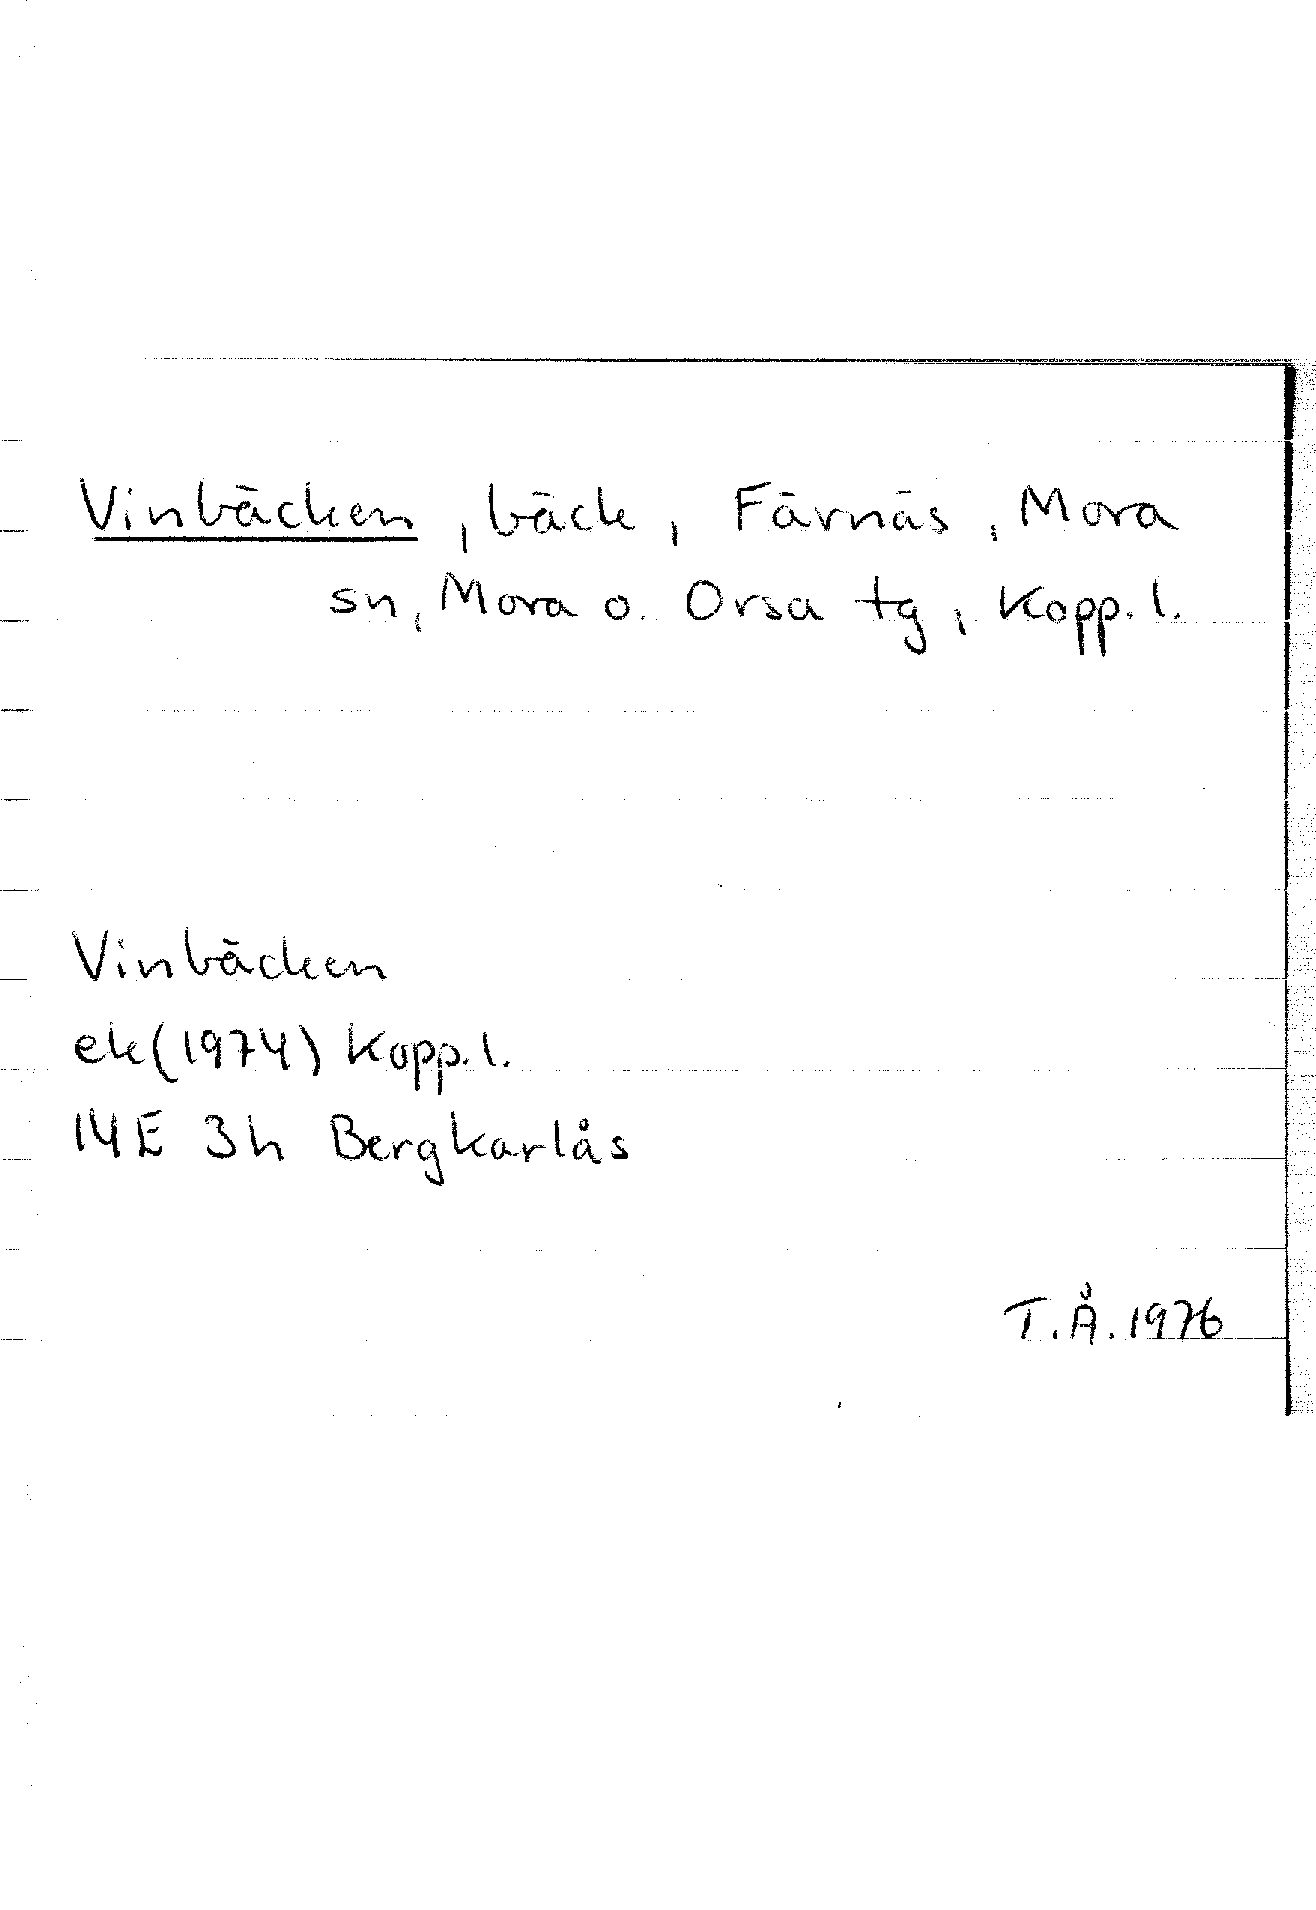 Vinbäcken, bäck, Färnäs, Mora
sn, Mora o. Orsa tg, Kopp. l.
Vinbäcken
ek(1974) Kopp. l.
14E 3h Bergkarlås
T.Å. 1976